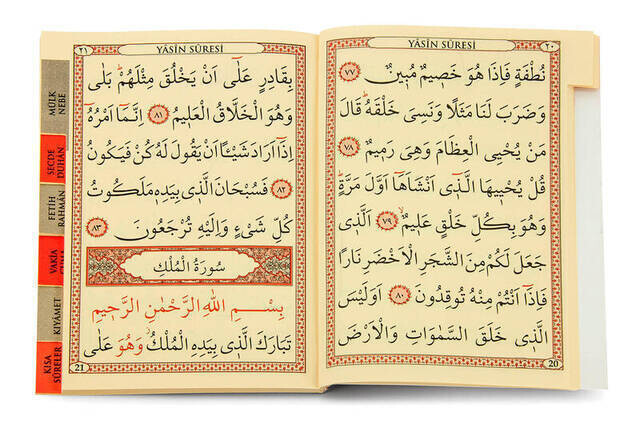 ٢٠
YÂSİN SÛRESİ
نُطْفَةٍ فَاِذَا هُوَ خَصٖيمٌ مُبٖينٌ ٧٧
وَضَرَبَ لَنَا مَثَلًا وَنَسِىَ خَلْقَهُ قَالَ
مَنْ يُحْيِى الْعِظَامَ وَهِىَ رَمٖيمٌ ٧٨
قُلْ يُحْيٖيهَا الَّذٖٓى اَنْشَاَهَٓا اَوَّلَ مَرَّةٍ
وَهُوَ بِكُلِّ خَلْقٍ عَلٖيمٌ ٧٩ اَلَّذٖى
جَعَلَ لَكُمْ مِنَ الشَّجَرِ الْاَخْضَرِ نَارًا
فَاِذَٓا اَنْتُمْ مِنْهُ تُوقِدُونَ ٨٠ اَوَلَيْسَ
الَّذٖى خَلَقَ السَّمٰوَاتِ وَالْاَرْضَ
20
٢١
YÂSİN SÛRESİ
بِقَادِرٍ عَلٰٓى اَنْ يَخْلُقَ مِثْلَهُمْ بَلٰى
وَهُوَ الْخَلَّاقُ الْعَلٖيمُ ٨١ اِنَّمَٓا اَمْرُهُٓ
اِذَٓا اَرَادَ شَيْـًٔا اَنْ يَقُولَ لَهُ كُنْ فَيَكُونُ
٨٢ فَسُبْحَانَ الَّذٖى بِيَدِهٖ مَلَكُوتُ
كُلِّ شَىْءٍ وَاِلَيْهِ تُرْجَعُونَ ٨٣
سُورَةُ الْمُلْكِ
بِسْمِ اللّٰهِ الرَّحْمٰنِ الرَّحٖيمِ
تَبَارَكَ الَّذٖى بِيَدِهِ الْمُلْكُ وَهُوَ عَلٰى
21
MÜLK
NEBE
SECDE
DUHAN
FETİH
RAHMAN
VAKIA
KIYÂMET
KISA
SÛRELER